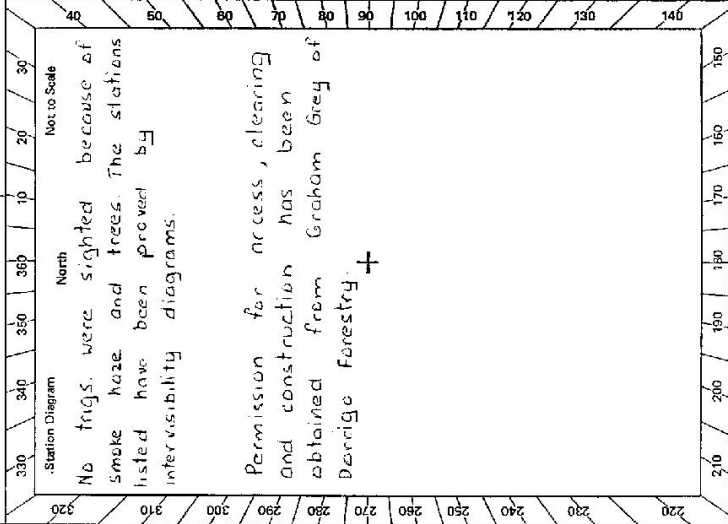 330 340 350 360 10 20 30
.Station Diagram North Not to Scale
No trigs. were sighted because of
smoke haze and trees. The stations
listed have been proved by
intervisibility diagrams.
Permission for access, clearing
and construction has been
obtained from Graham Grey of
Dorrigo Forestry.
40
50
60
70
80
90
100
110
120
130
140
150
160
170
180
190
200
210
220
230
240
250
260
270
280
290
300
310
320